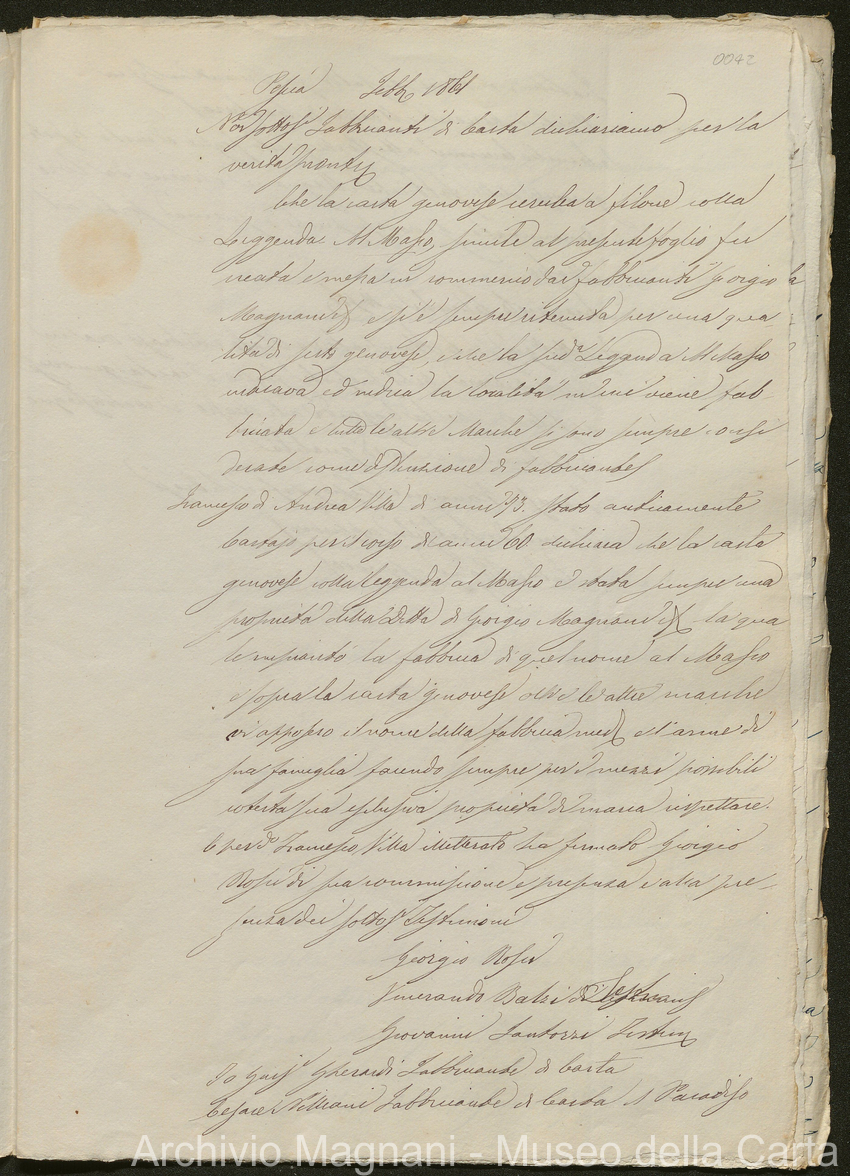 0042
Pescia Febb. 1861
Noi sottos.i Fabbricanti di Carta dichiariamo per la
verità
Che la carta genovese cerulea a filone colla
Leggenda Al Masso, simile al presente foglio fu
creata e messa in commercio dai fabbricanti Giorgio
Magnani e si è sempre ritenuta per una qua-
lità di genovese, e che la sud.a Leggenda Al Masso
indicava ed indica la località in cui viene fab-
bricata e tutte le altre Marche si sono sempre consi
derate come distinzione di fabbricante
Francesco di Andrea Villa di anni 73. stato anticamente
Cartajo per il corso di anni 60 dichiara che la carta
genovese colla leggenda al Masso è stata sempre una
proprietà della Ditta di Giorgio Magnani la qua
le la fabbrica di quel nome al Masso
e sopra la carta genovese oltre le altre marche
vi appose il nome della fabbrica med. e l'arme di
sua famiglia facendo sempre per i mezzi possibili
cotesta sua esclusiva proprietà di marca rispettare.
E per d.o Francesco Villa illetterato ha firmato Giorgio
Rosi di sua commissione e presenza e alla pre-
senza dei sottos.i Testimoni
Giorgio Rosi
Venerando
Giovanni Santozzi
Io Gherardi Fabbricante di Carta
Cesare Fabbricante di Carta
Archivio Magnani - Museo della Carta